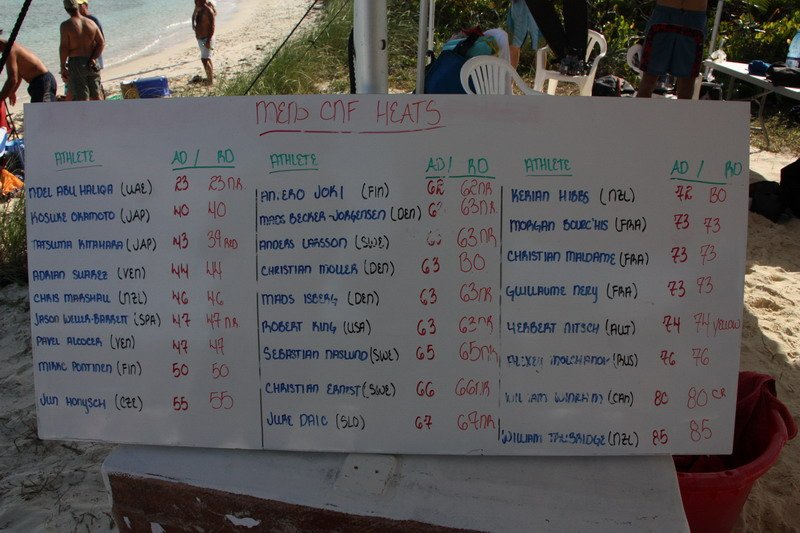 MEN'S CNF HEATS
ATHLETE AD / RD
NOEL ABU HALIQA (UAE) 23 23 NR
KOSUKE OKAMOTO (JAP) 40 40
TATSUMA KITAHARA (JAP) 43 39 RED
ADRIAN SUAREZ (VEN) 44 44
CHRIS MARSHALL (NZL) 46 46
JASON WELLER-BARRETT (SPA) 47 47 NR
PAVEL ALCOCER (VEN) 47 47
MIKKO PONTINEN (FIN) 50 50
JUN HONYSCH (CZE) 55 55
ATHLETE AD / RD
ANTERO JOKI (FIN) 62 62NR
MADS BECKER-JORGENSEN (DEN) 63NR
ANDERS LARSSON (SWE) 63NR
CHRISTIAN MOLLER (DEN) 63 BO
MADS ISBERG (DEN) 63 63NR
ROBERT KING (USA) 63 63NR
SEBASTIAN NASLUND (SWE) 65 65NR
CHRISTIAN ERNEST (SWE) 66 66NR
JURE DAIC (SLO) 67 67NR
ATHLETE AD / RD
KERIAN HIBBS (NZL) 72 BO
MORGAN BOURC'HIS (FRA) 73 73
CHRISTIAN MALDAME (FRA) 73 73
GUILLAUME NERY (FRA) 73 73
HERBERT NITSCH (AUT) 74 74 YELLOW
ALEXEY MOLCHANOV (RUS) 76 76
WILLIAM WINRAM (CAN) 80 80 CR
WILLIAM TRUBRIDGE (NZL) 85 85